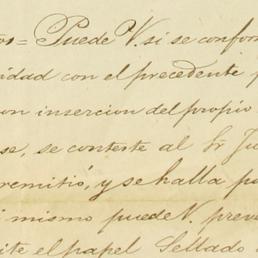 os = Puede V. si se confor
idad con el precedente p
on insercion del propio
se, se conteste al Sr Ju
remitió, y se halla pa
i mismo puede V. prev
ite el papel Sellado